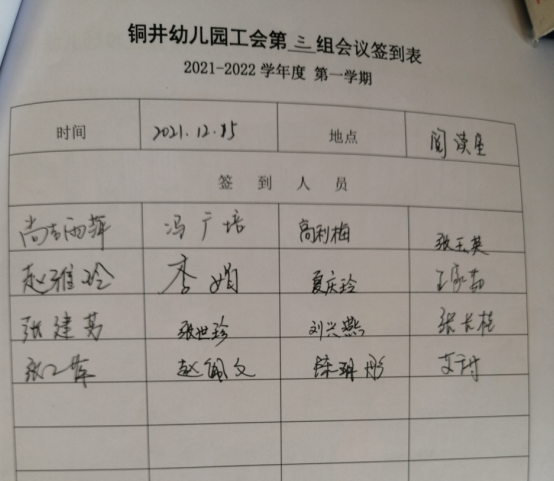 铜井幼儿园工会第三组会议签到表
2021-2022 学年度 第一学期
时间 2021.12.15 地点 阅读室
签 到 人 员
冯广培 高利梅 张玉英
赵雅玲 李娟 夏庆玲
张建芳 张世珍 刘兴燕 张长桂
赵佩文 陈琳彤